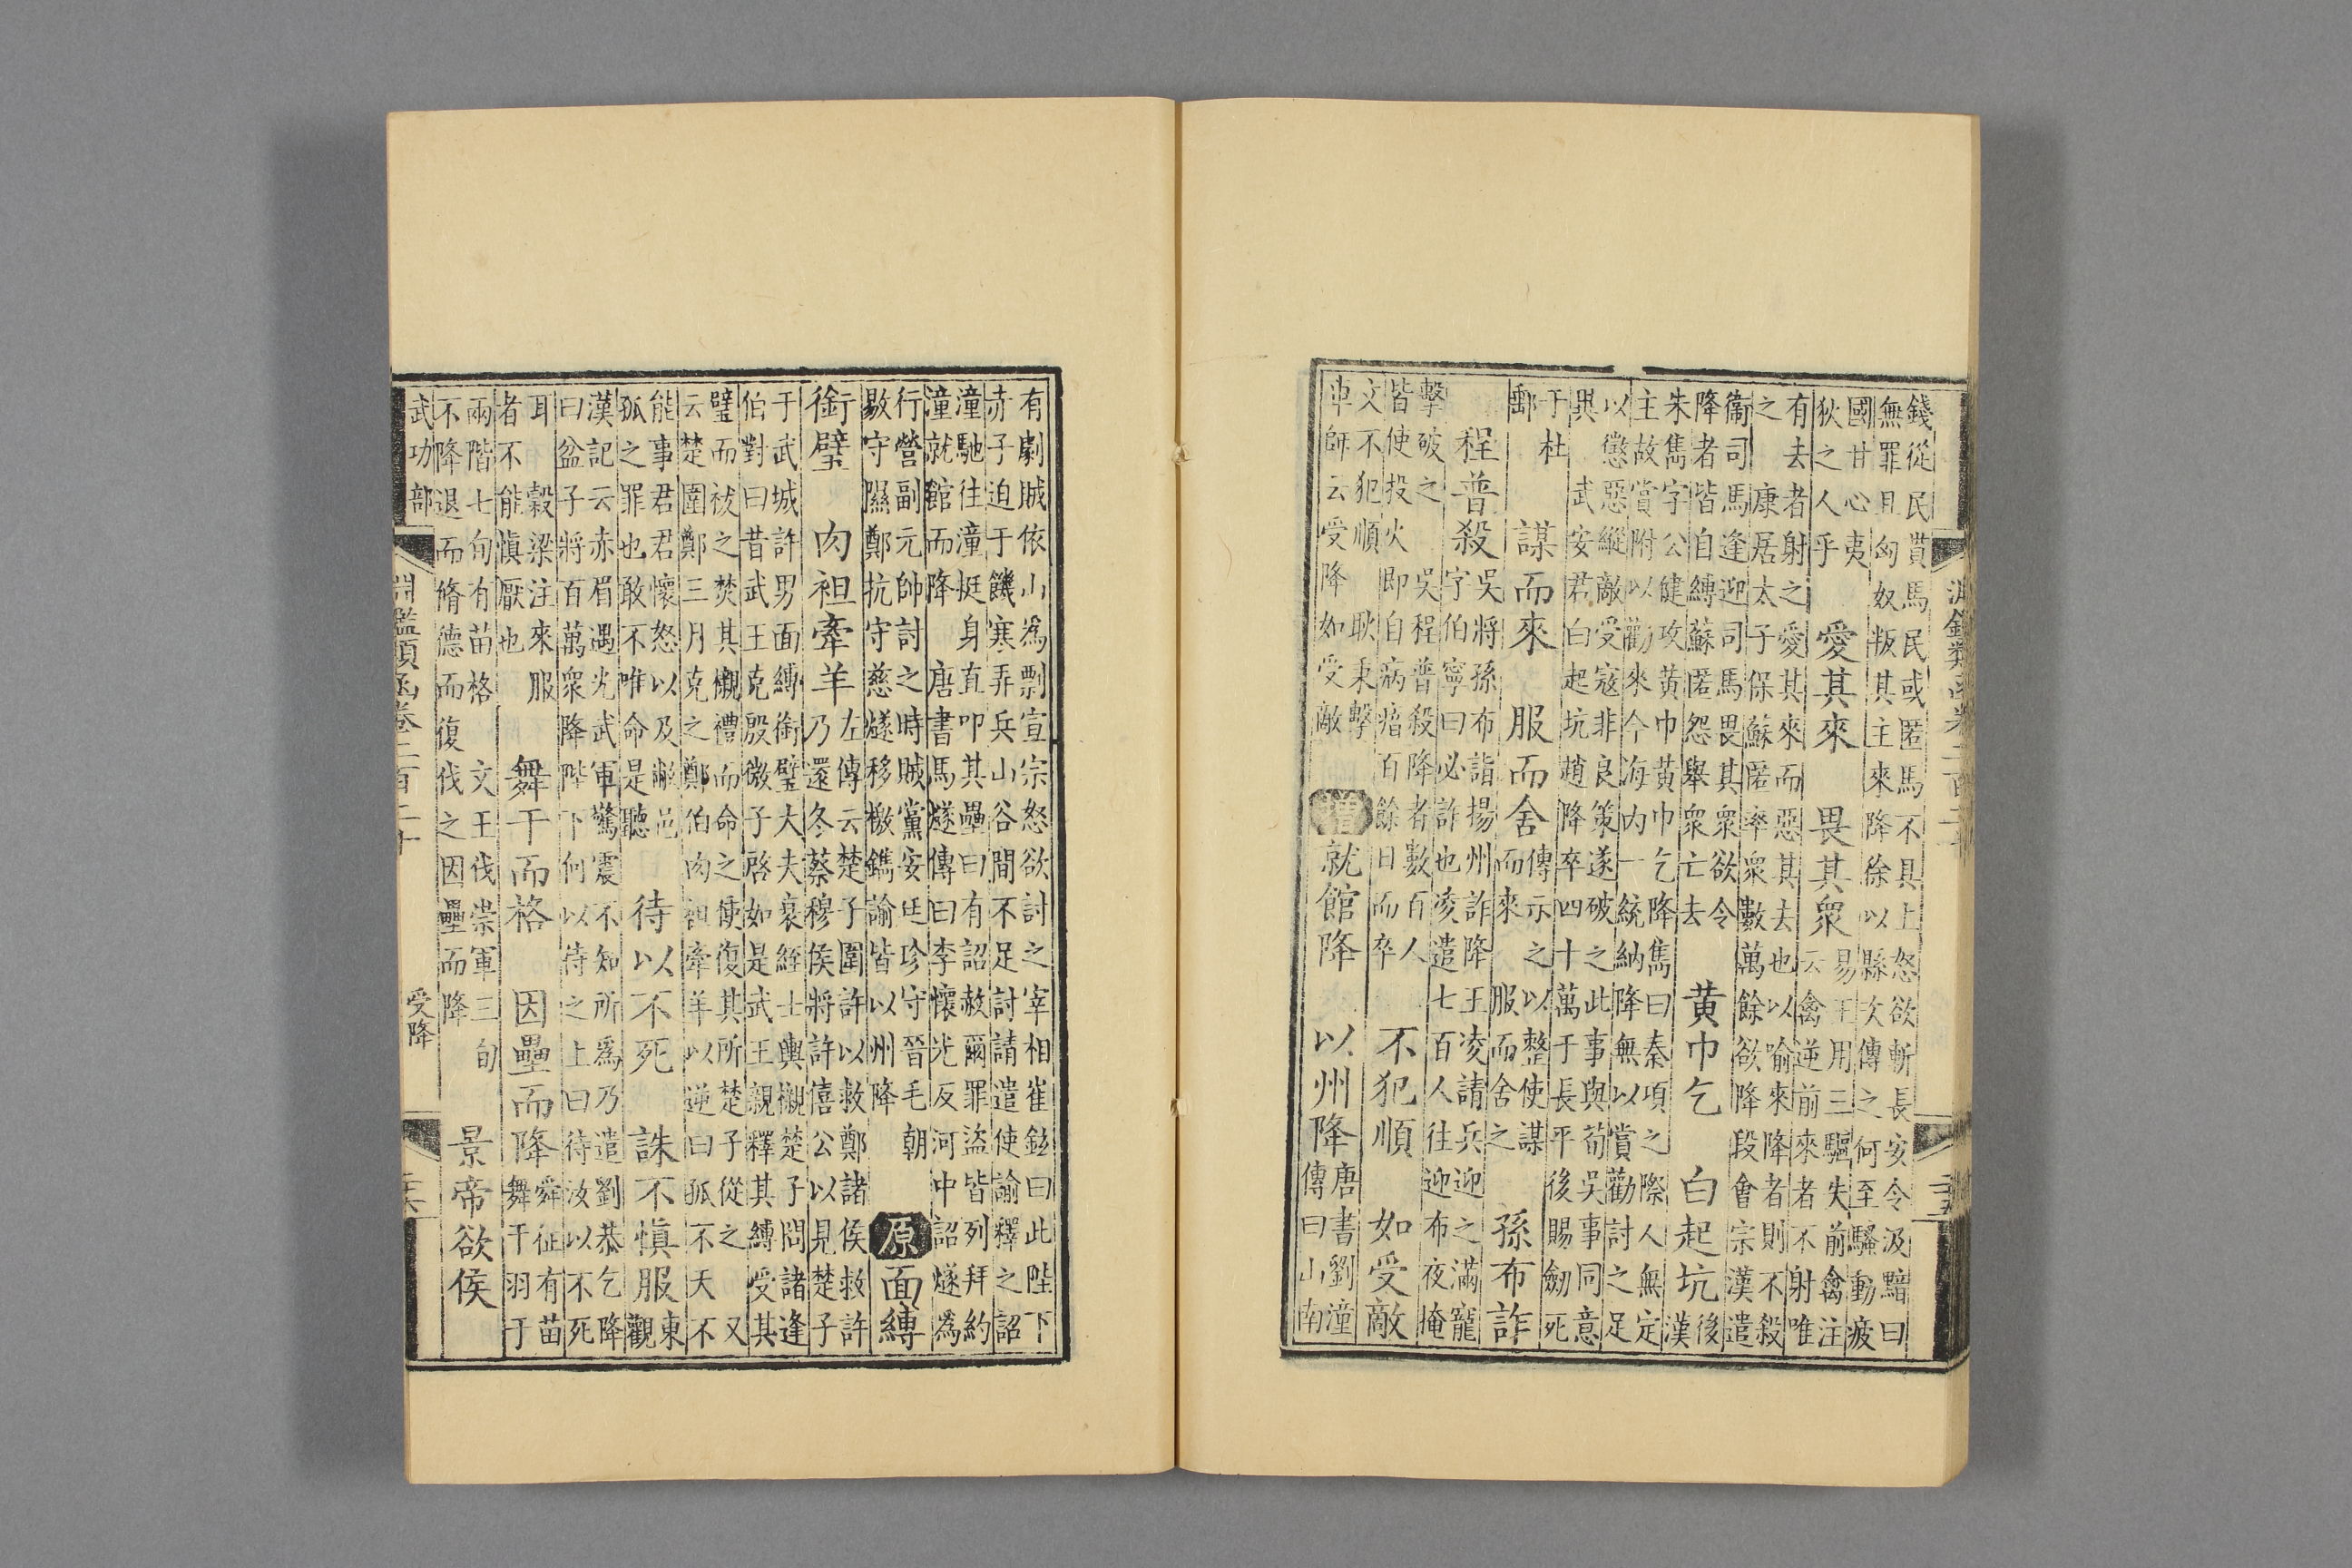 淵鑑類函卷二百二十
錢從民貰馬民或匿馬不具上怒欲斬長安令汲黯曰
無罪且匈奴叛其主來降徐以縣次傳之何至騷動疲
國甘心夷
狄之人乎
愛其來　畏其衆
易王用三驅失前禽注
云禽逆前來者不射唯
有去者射之愛其來而惡其去也以喻來降者則不殺
之　康居太子保蘇匿率衆數萬餘欲降段會宗漢遣
衞司馬逢迎司馬畏其衆欲令
降者皆自縛蘇匿怨舉衆亡去
黄巾乞　白起坑
後
漢
朱雋字公健攻黃巾黃巾乞降雋曰秦項之際人無定
主故賞附以勸來今海内一統納降無以賞勸討之足
以懲惡縱敵受寇非良策遂破之此事與荀吳事同意
異　武安君白起坑趙降卒四十萬于長平後賜劒死
于杜
郵
謀而來　服而舍
傳示之以整使謀
而來　服而舍之
孫布詐
程普殺
吳將孫布詣揚州詐降王凌請兵迎之滿寵
字伯寧曰必詐也凌遣七百人往迎布夜掩
擊破之　吳程普殺降者數百人
皆使投火即自病瘡百餘日而卒
不犯順　如受敵
文不犯順　耿秉擊
車師云受降如受敵
增就館降　以州降
唐書劉潼
傳曰山南
有劇賊依山為剽宣宗怒欲討之宰相崔鉉曰此陛下
赤子迫于饑寒弄兵山谷間不足討請遣使諭釋之詔
潼馳往潼挺身直叩其壘曰有詔赦爾罪盜皆列拜約
潼就館而降　唐書馬燧傳曰李懷光反河中詔燧為
行營副元帥討之時賊黨安廷珍守晉毛朝
敭守隰鄭抗守慈燧移檄鐫諭皆以州降
原面縛
銜璧　肉袒牽羊
左傳云楚子圍許以救鄭諸侯救許
乃還冬蔡穆侯將許僖公以見楚子
于武城許男面縛銜璧大夫衰絰士輿櫬楚子問諸逢
伯對曰昔武王克殷微子啓如是武王親釋其縛受其
璧而祓之焚其櫬禮而命之使復其所楚子從之　又
云楚圍鄭三月克之鄭伯肉袒牽羊以逆曰孤不天不
能事君君懷怒以及敝邑
孤之罪也敢不唯命是聽
待以不死　誅不慎服
東
觀
漢記云赤眉遇光武軍驚震不知所為乃遣劉恭乞降
曰盆子將百萬衆降陛下何以待之上曰待汝以不死
耳　穀梁注來服
者不能慎厭也
舞干而格　因壘而降
舜征有苗
舞干羽于
兩階七旬有苗格　文王伐崇軍三旬
不降退而脩德而復伐之因壘而降
景帝欲侯
武功部　淵鑑類函卷二百二十　受降